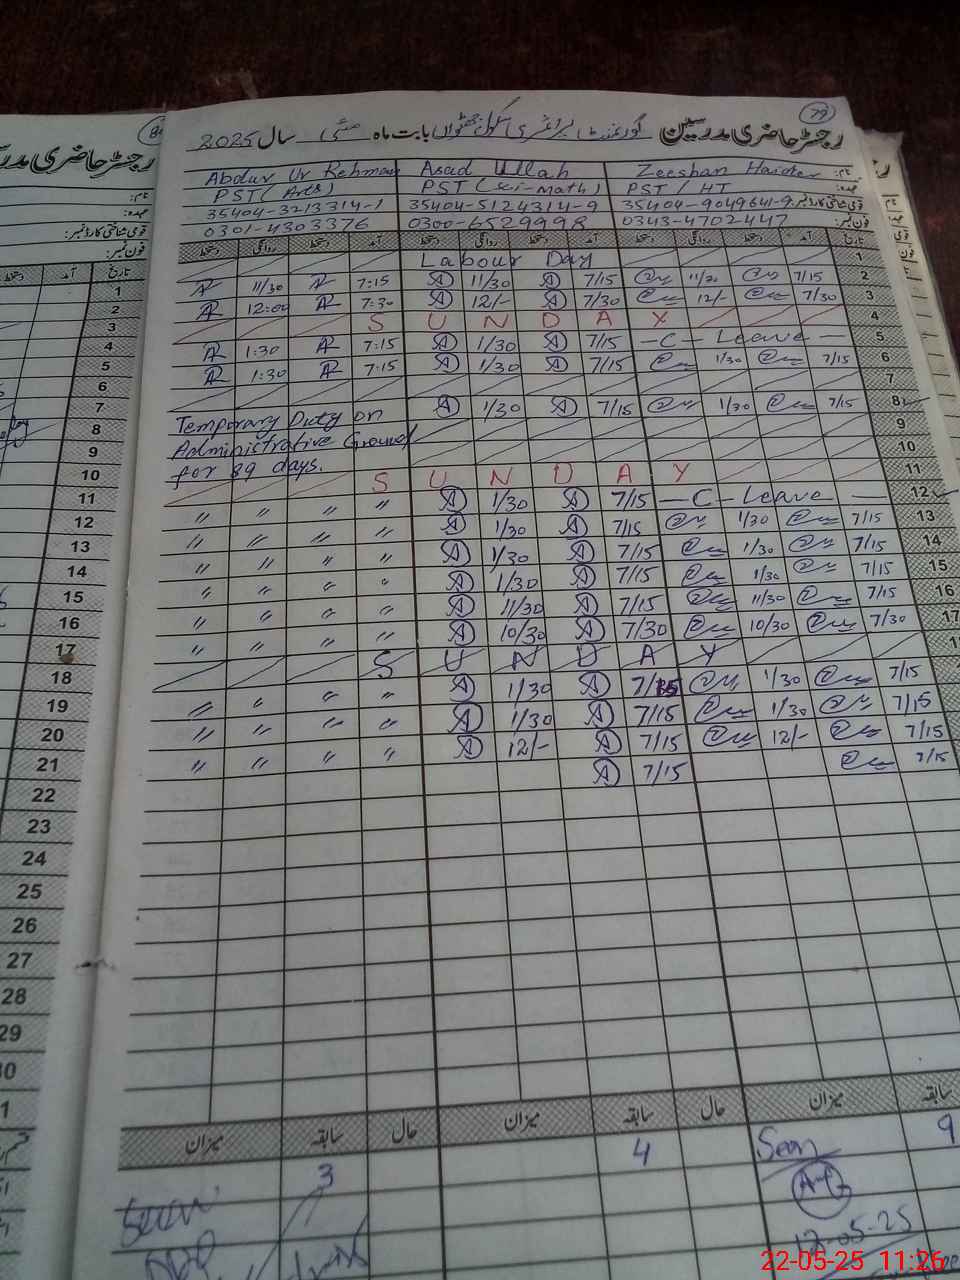 79
رجسٹر حاضری مدرسین گورنمنٹ پرائمری سکول بابت ماہ مئی سال 2025
Abdur Ur Rehman Asad Ullah Zeeshan Haider نام:
PST (Arts) PST (Sci-Math) PST / HT عہدہ:
35404-3213314-1 35404-5124314-9 35404-9049641-9 قومی شناختی کارڈ نمبر:
0301-4303376 0300-6529998 0343-4702447 فون نمبر:
دستخط روانگی دستخط آمد دستخط روانگی دستخط آمد دستخط روانگی دستخط آمد تاریخ
Labour Day 1
11/30 7:15 11/30 7/15 11/30 7/15 2
12:00 7:30 12/- 7/30 12/- 7/30 3
S U N D A Y 4
1:30 7:15 1/30 7/15 -C- Leave - 5
1:30 7:15 1/30 7/15 1/30 7/15 6
7
Temporary Duty on 1/30 7/15 1/30 7/15 8
Administrative Ground 9
for 89 days. 10
S U N D A Y 11
" " " " 1/30 7/15 -C- Leave - 12
" " " " 1/30 7/15 1/30 7/15 13
" " " " 1/30 7/15 1/30 7/15 14
" " " " 1/30 7/15 1/30 7/15 15
" " " " 11/30 7/15 11/30 7/15 16
" " " " 10/30 7/30 10/30 7/30 17
S U N D A Y
" " " " 1/30 7/15 1/30 7/15
" " " " 1/30 7/15 1/30 7/15
" " " " 12/- 7/15 12/- 7/15
7/15 7/15
میزان سابقہ حال میزان سابقہ حال میزان سابقہ
3 4 Seen 9
12-05-25
22-05-25 11:26
رجسٹر حاضری
نام:
عہدہ:
قومی شناختی کارڈ نمبر:
فون نمبر:
دستخط آمد تاریخ
1
2
3
4
5
6
7
8
9
10
11
12
13
14
15
16
17
18
19
20
21
22
23
24
25
26
27
28
29